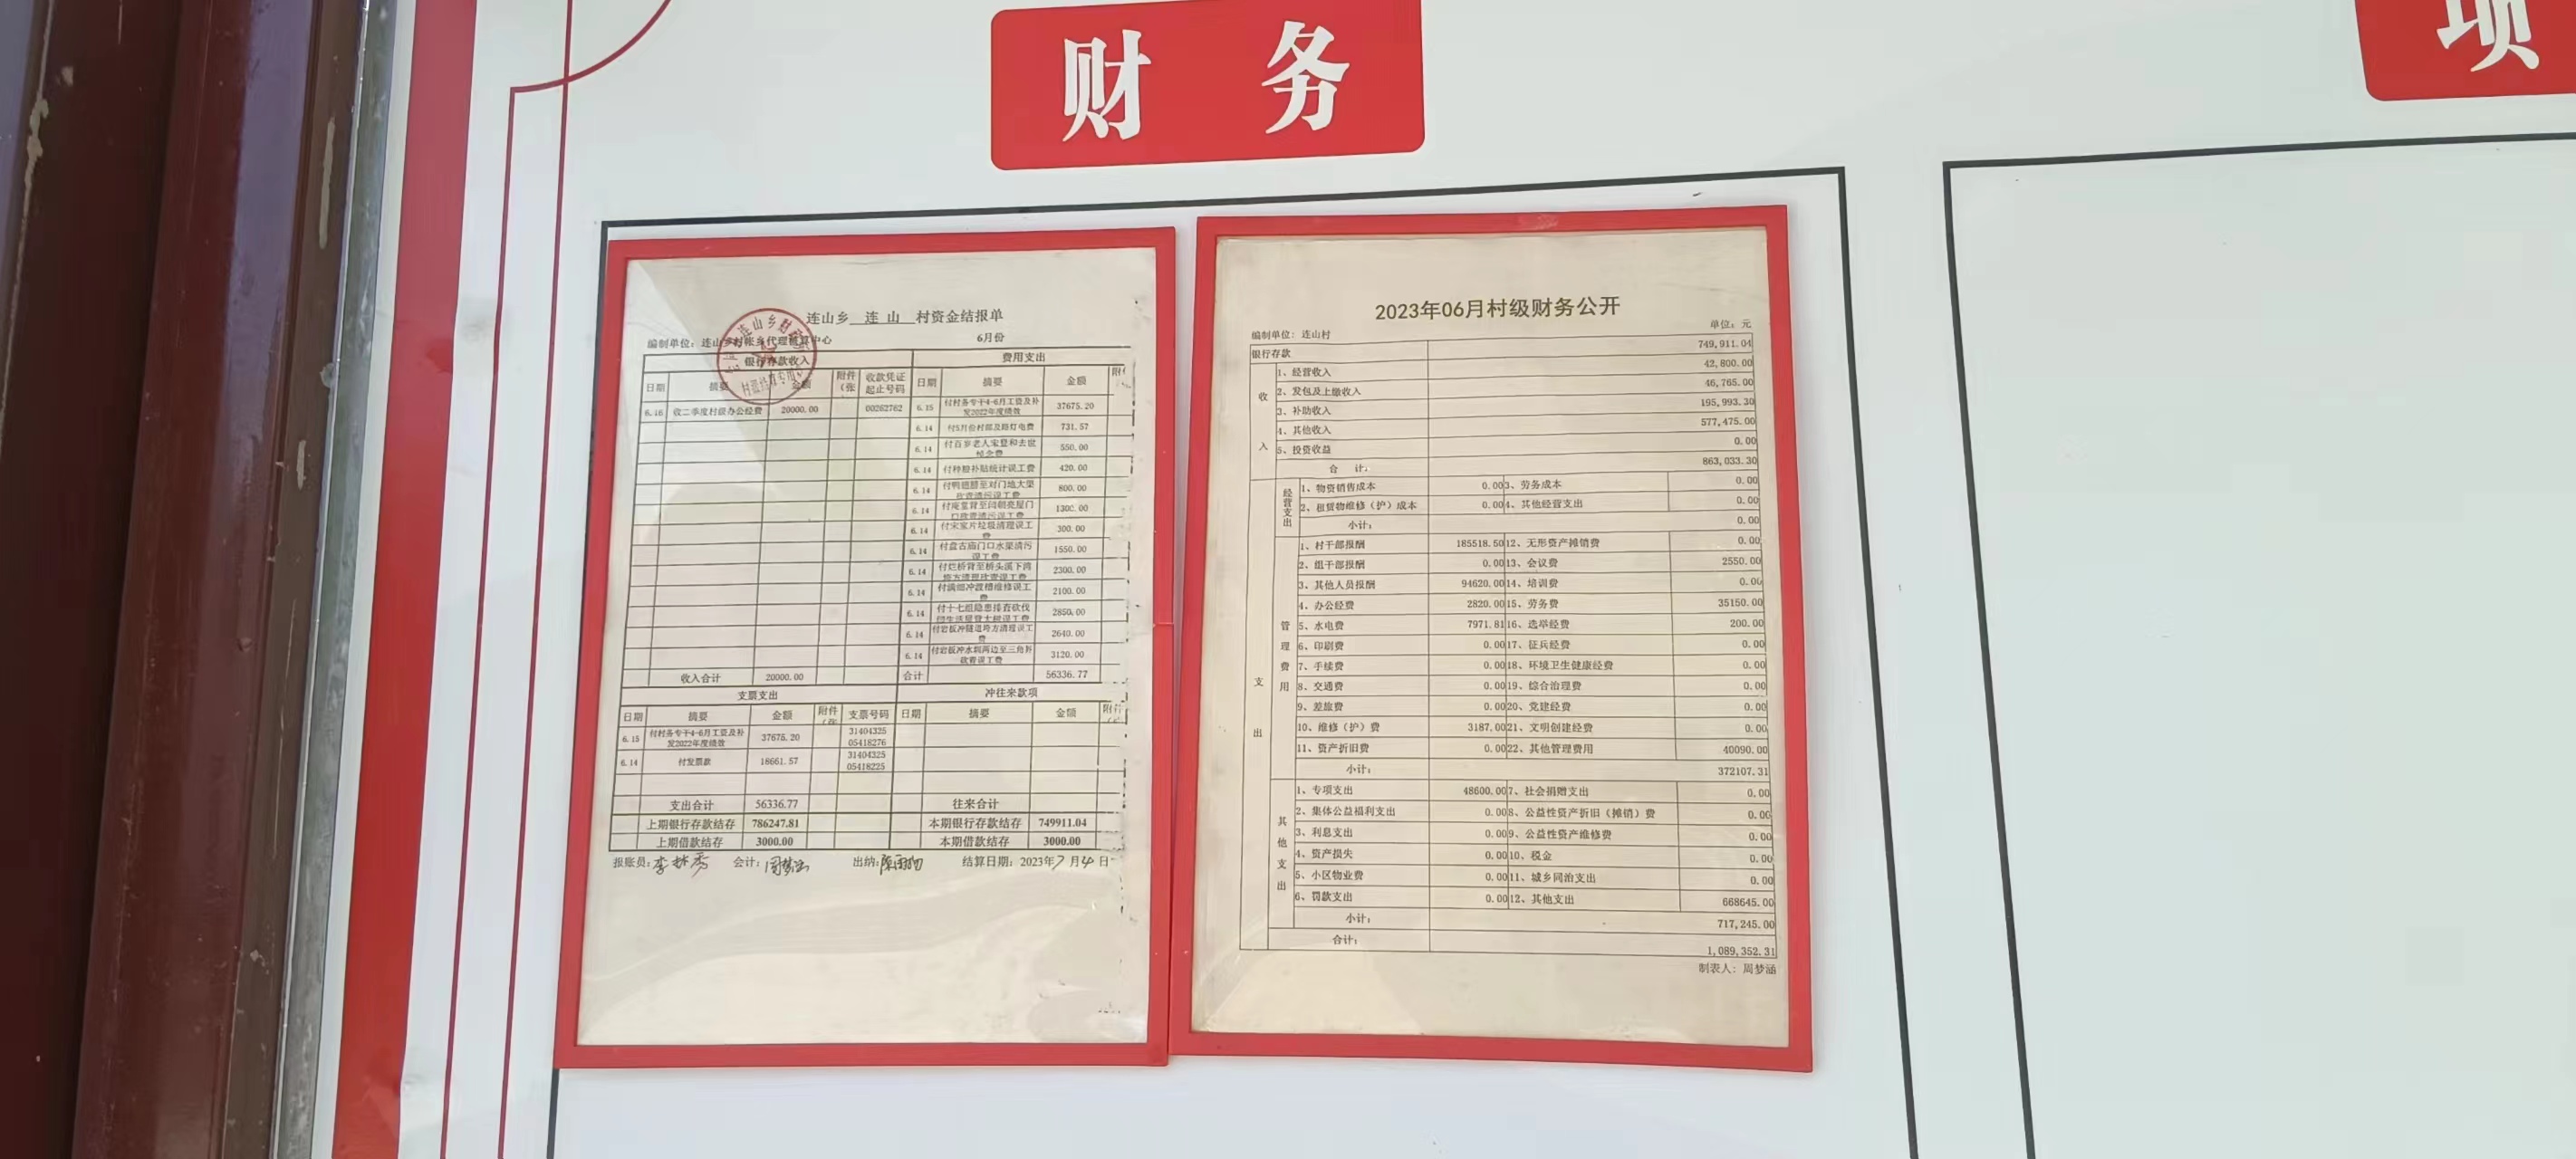 财 务
项
连山乡 连 山 村资金结报单
编制单位：连山乡村帐乡代理核算中心 6月份
银行存款收入 费用支出
日期 摘要 金额 附件（张 收款凭证起止号码 日期 摘要 金额
6.16 收二季度村级办公经费 20000.00 00262762 6.15 付村务专干4-6月工资及补发2022年度绩效 37675.20
6.14 付5月份村部及路灯电费 731.57
6.14 付百岁老人宋登和去世悼念费 550.00
6.14 付种粮补贴统计误工费 420.00
6.14 800.00
6.14 1300.00
6.14 付宋家片垃圾清理误工费 300.00
6.14 付盘古庙门口水渠清污误工费 1550.00
6.14 2300.00
6.14 2100.00
6.14 2850.00
6.14 付岩板冲隧道垮方清理误工费 2640.00
6.14 3120.00
收入合计 20000.00 合计 56336.77
支票支出 冲往来款项
日期 摘要 金额 附件 支票号码 日期 摘要 金额
6.15 付村务专干4-6月工资及补发2022年度绩效 37675.20 31404325 05418276
6.14 付发票款 18661.57 31404325 05418225
支出合计 56336.77 往来合计
上期银行存款结存 786247.81 本期银行存款结存 749911.04
上期借款结存 3000.00 本期借款结存 3000.00
报账员： 会计： 出纳： 结算日期：2023年7月4日
2023年06月村级财务公开
编制单位：连山村 单位：元
银行存款 749,911.04
收入
1、经营收入 42,800.00
2、发包及上缴收入 46,765.00
3、补助收入 195,993.30
4、其他收入 577,475.00
5、投资收益 0.00
合 计： 863,033.30
支出
经营支出
1、物资销售成本 0.00 3、劳务成本 0.00
2、租赁物维修（护）成本 0.00 4、其他经营支出 0.00
小计： 0.00
管理费用
1、村干部报酬 185518.50 12、无形资产摊销费 0.00
2、组干部报酬 0.00 13、会议费 2550.00
3、其他人员报酬 94620.00 14、培训费 0.00
4、办公经费 2820.00 15、劳务费 35150.00
5、水电费 7971.81 16、选举经费 200.00
6、印刷费 0.00 17、征兵经费 0.00
7、手续费 0.00 18、环境卫生健康经费 0.00
8、交通费 0.00 19、综合治理费 0.00
9、差旅费 0.00 20、党建经费 0.00
10、维修（护）费 3187.00 21、文明创建经费 0.00
11、资产折旧费 0.00 22、其他管理费用 40090.00
小计： 372107.31
其他支出
1、专项支出 48600.00 7、社会捐赠支出 0.00
2、集体公益福利支出 0.00 8、公益性资产折旧（摊销）费 0.00
3、利息支出 0.00 9、公益性资产维修费 0.00
4、资产损失 0.00 10、税金 0.00
5、小区物业费 0.00 11、城乡同治支出 0.00
6、罚款支出 0.00 12、其他支出 668645.00
小计： 717,245.00
合计： 1,089,352.31
制表人：周梦涵